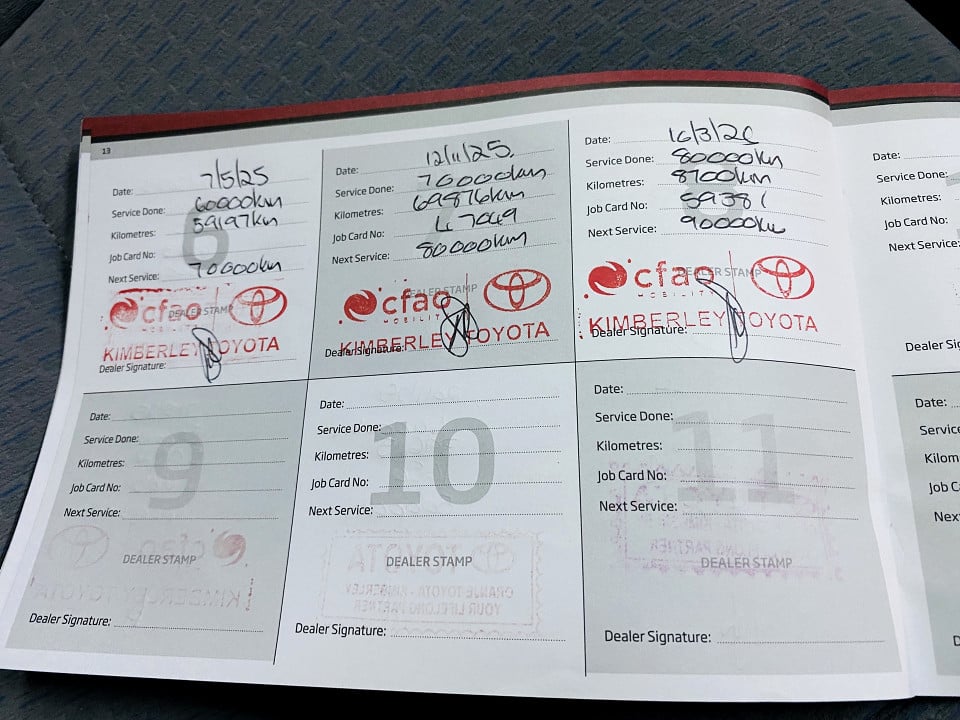 13
Date: 7/5/25
Service Done: 60000km
Kilometres: 59197km
Job Card No:
Next Service: 70000km
6
DEALER STAMP
cfao
MOBILITY
KIMBERLEY TOYOTA
Dealer Signature:
Date: 12/11/25.
Service Done: 70000km
Kilometres: 69876km
Job Card No: 47049
Next Service: 80000km
DEALER STAMP
cfao
MOBILITY
KIMBERLEY TOYOTA
Dealer Signature:
Date: 16/3/26
Service Done: 80000km
Kilometres: 8700km
Job Card No: 59381
Next Service: 90000km
DEALER STAMP
cfao
MOBILITY
KIMBERLEY TOYOTA
Dealer Signature:
Date:
Service Done:
Kilometres:
Job Card No:
Next Service:
Dealer Si
Date:
Service Done:
Kilometres:
Job Card No:
Next Service:
9
DEALER STAMP
Dealer Signature:
Date:
Service Done:
Kilometres:
Job Card No:
Next Service:
10
DEALER STAMP
Dealer Signature:
Date:
Service Done:
Kilometres:
Job Card No:
Next Service:
11
DEALER STAMP
Dealer Signature:
Date:
Servic
Kilom
Job C
Nex
D